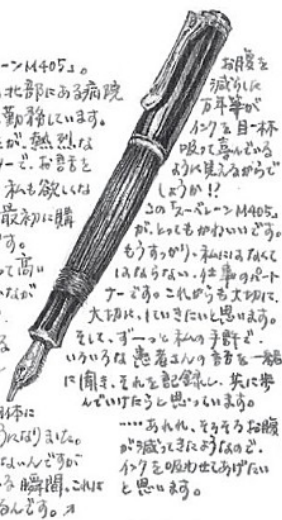 ーンM405』。
北部にある病院
勤務しています。
が、熱烈な
ーで、お話を
私も欲しくな
最初に購
す。
て高い
いながが
る
体に
うになりました。
ないんですが
る瞬間、これは
るんです。
お腹を
減らした
万年筆が
インクを目一杯
吸って喜んでいる
ように見えるからで
しょうか!?
この『スーベレーンM405』
が、とってもかわいいです。
もうすっかり、私にはなくて
はならない、仕事のパート
ナーです。これからも大切に、
大切に、していきたいと思います。
そして、ずーっと私の手許で、
いろいろな患者さんの話を一緒
に聞き、それを記録し、共に歩
んでいけたらと思っています。
……あれれ、そろそろお腹
が減ってきたようなので、
インクを吸わせてあげたい
と思います。